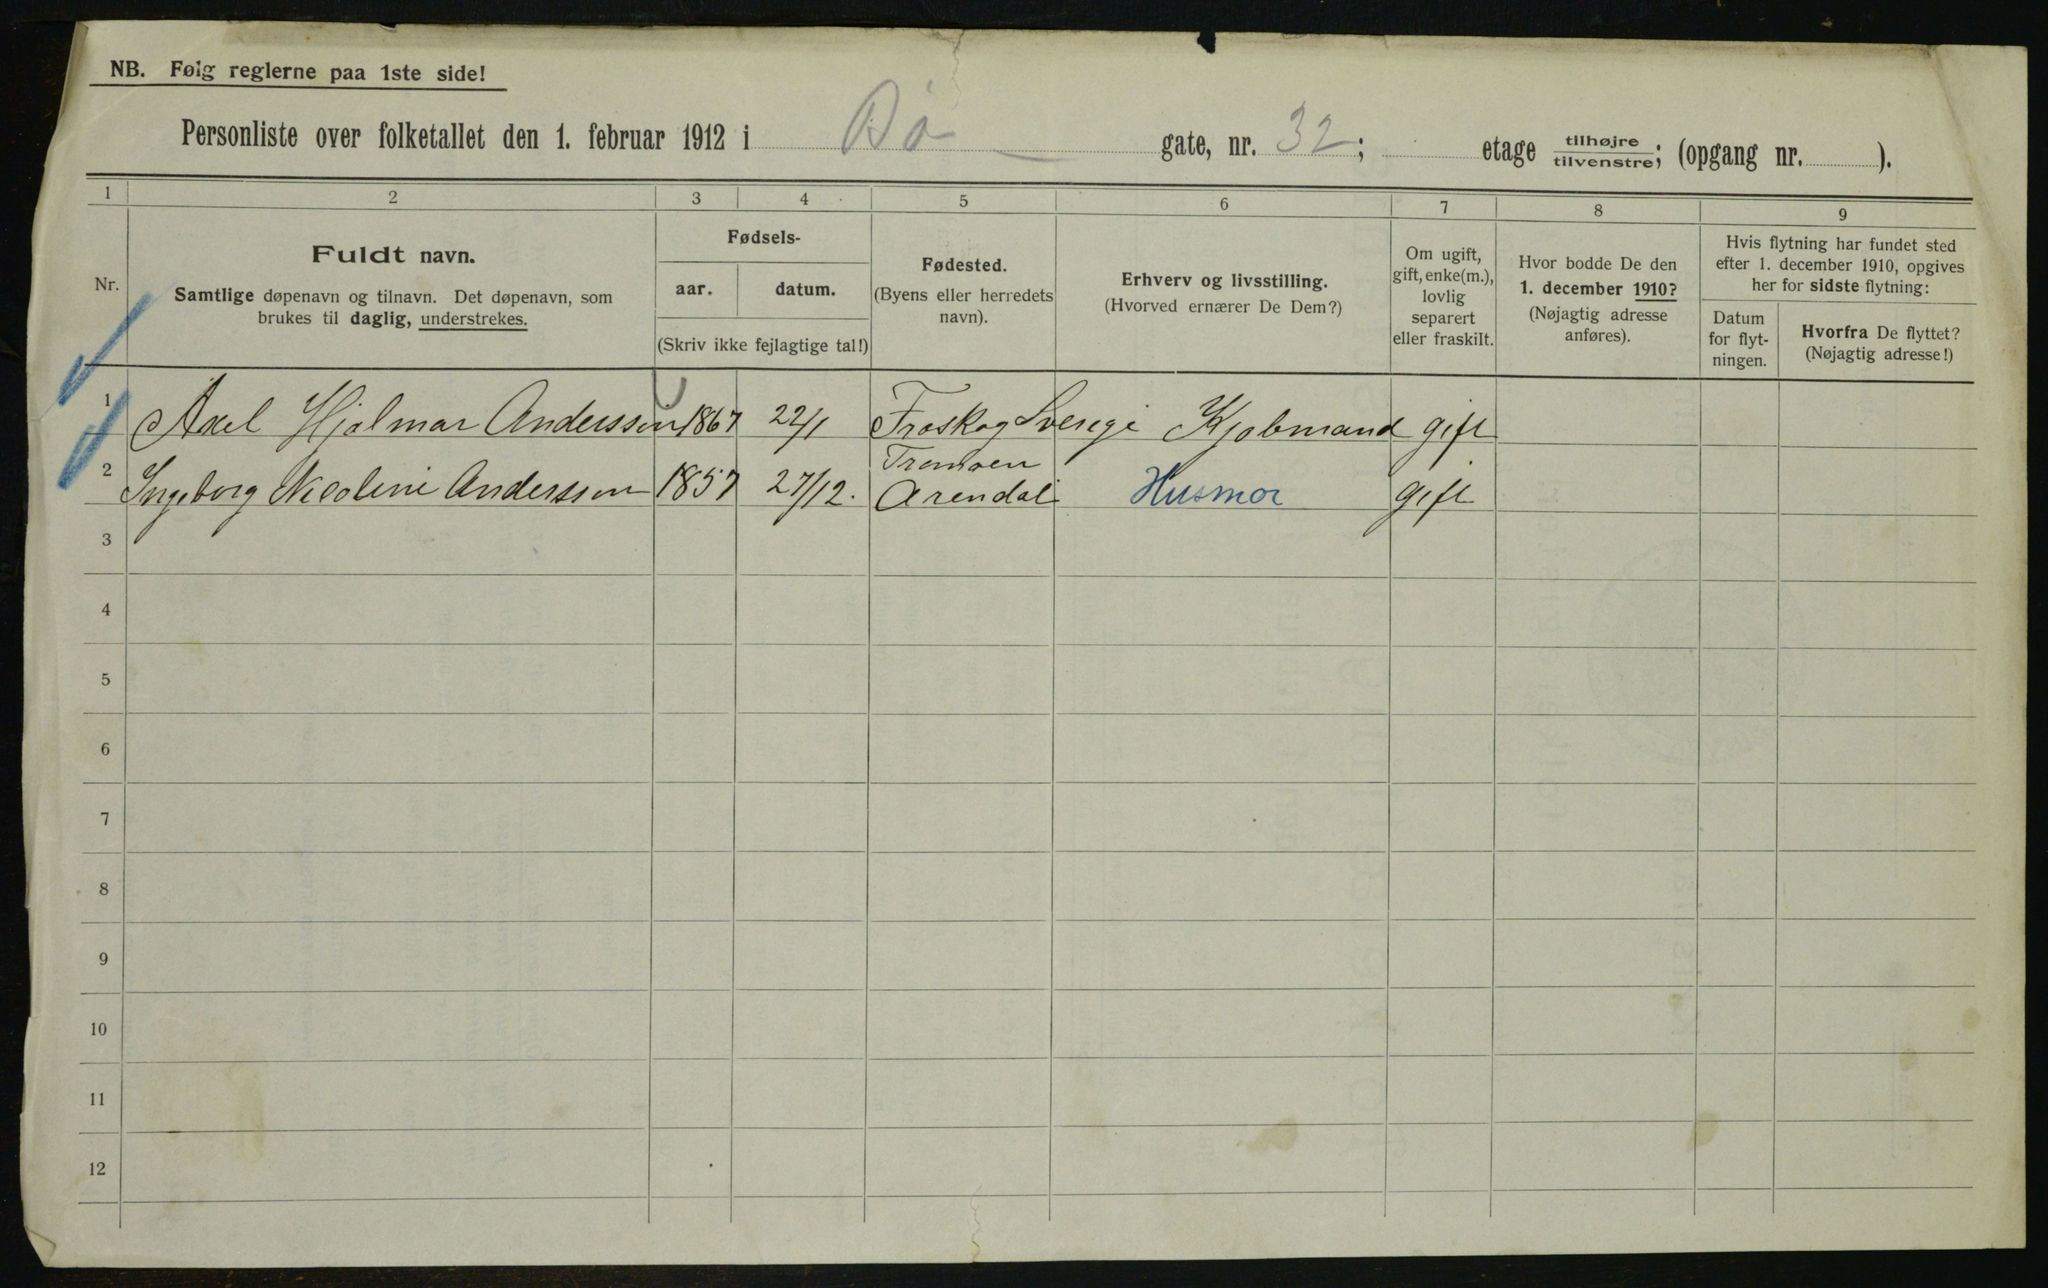 NB. Følg reglerne paa 1ste side!
Personliste over folketallet den 1. februar 1912 i Bø gate, nr. 32; etage tilhøjre/tilvenstre; (opgang nr. ).
1 2 3 4 5 6 7 8 9
Nr.
Fuldt navn.
Samtlige døpenavn og tilnavn. Det døpenavn, som
brukes til daglig, understrekes.
Fødsels-
aar. datum.
(Skriv ikke fejlagtige tal!)
Fødested.
(Byens eller herredets
navn).
Erhverv og livsstilling.
(Hvorved ernærer De Dem?)
Om ugift,
gift, enke(m.),
lovlig
separert
eller fraskilt.
Hvor bodde De den
1. december 1910?
(Nøjagtig adresse
anføres).
Hvis flytning har fundet sted
efter 1. december 1910, opgives
her for sidste flytning:
Datum
for flyt-
ningen.
Hvorfra De flyttet?
(Nøjagtig adresse!)
1 Axel Hjalmar Andersson 1867 22/1 Froskog Sverige Kjøbmand gift
Tromøen
2 Ingeborg Nicoline Andersson 1857 27/12. Arendal Husmor gift
3
4
5
6
7
8
9
10
11
12